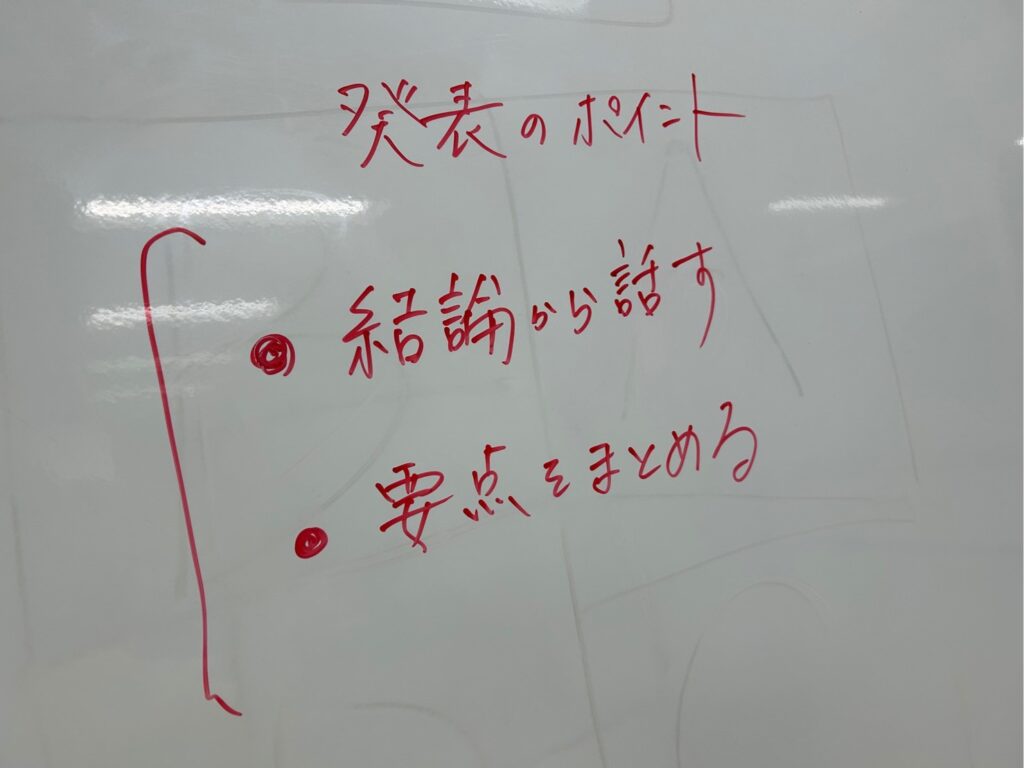 発表のポイント
• 結論から話す
• 要点をまとめる